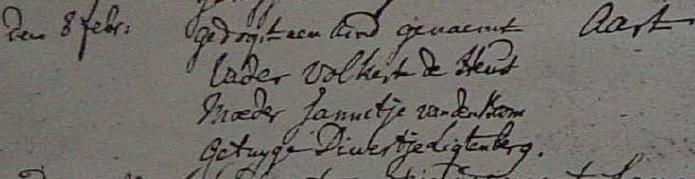 den 8 febr: gedoopt een kind genaemt Aart
Vader Volkert de Heus
Moeder Jannetje van den Boom
getuyge Diwertje Ligtenberg.